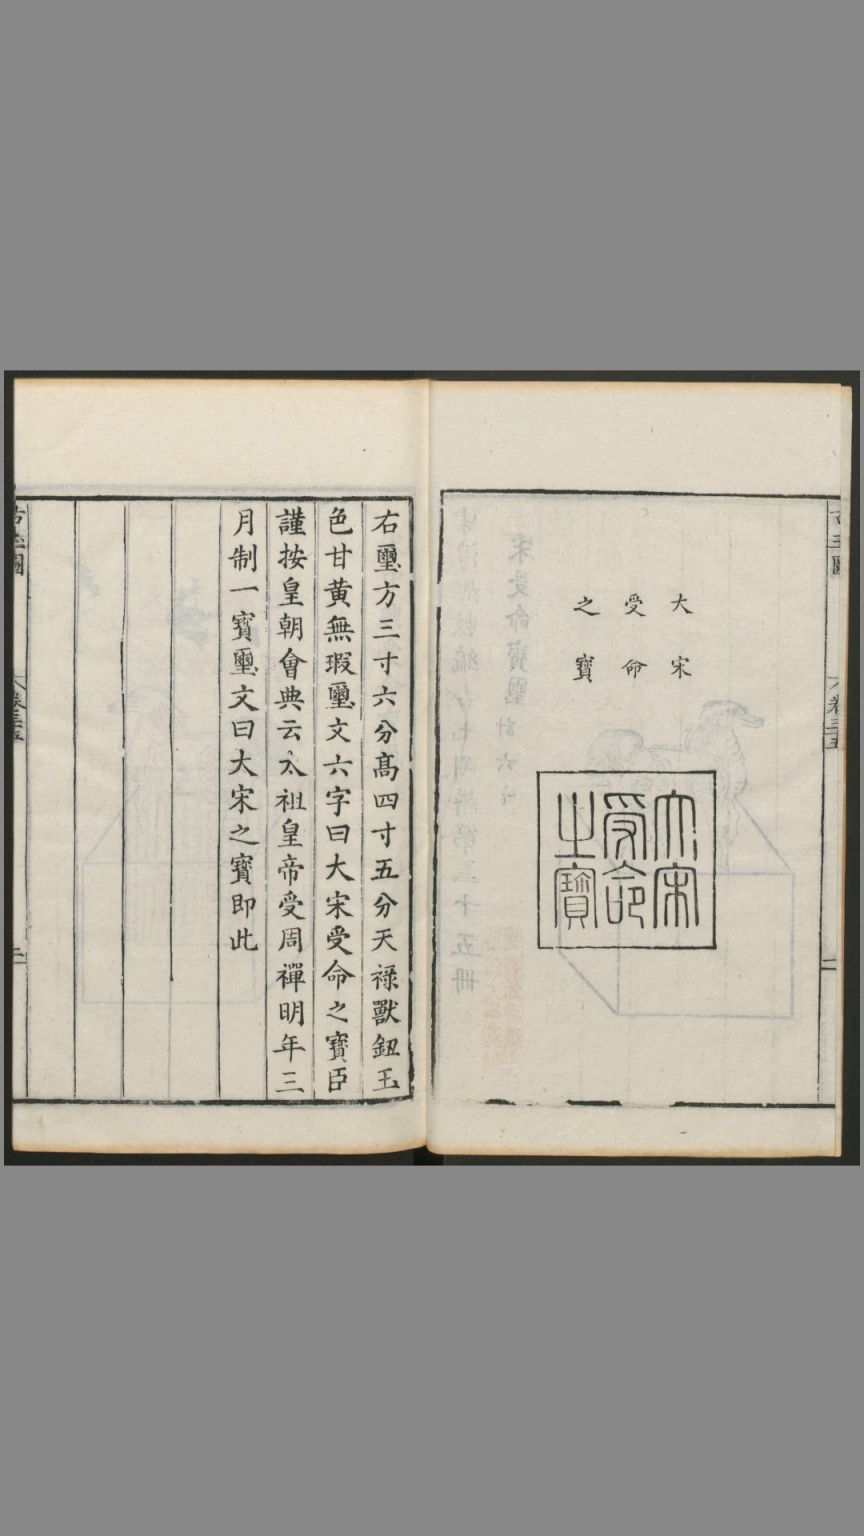 大宋
受命
之寶
大宋
受命
之寶
右璽方三寸六分高四寸五分天祿獸鈕玉
色甘黃無瑕璽文六字曰大宋受命之寶臣
謹按皇朝會典云太祖皇帝受周禪明年三
月制一寶璽文曰大宋之寶即此